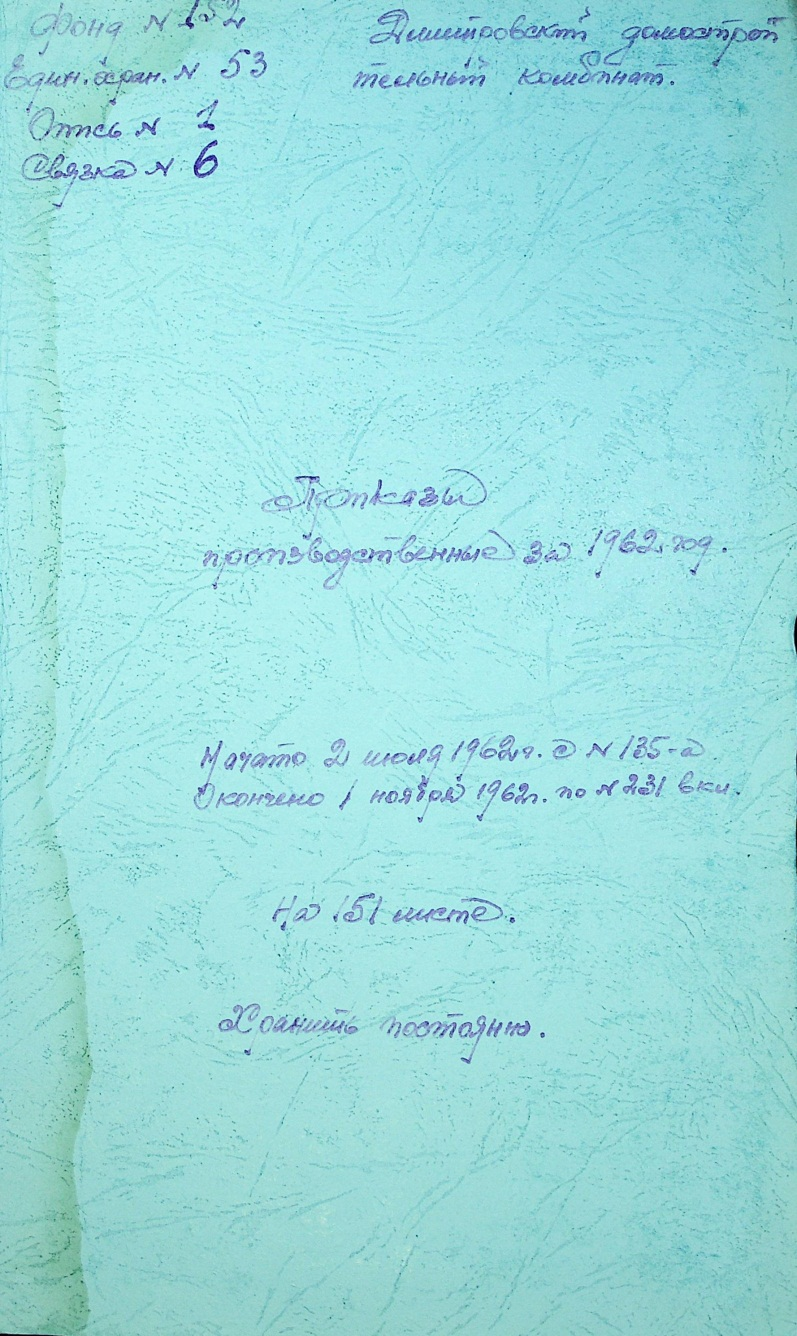 Фонд N 152
Един. хран. N 53
Опись N 1
Связка N 6
Димитровский домострои
тельный комбинат.
Приказы
производственные за 1962 год.
Начато 2 июля 1962 г. с N 135-а
Окончено 1 ноября 1962 г. по N 231 вкл.
На 151 листе.
Хранить постоянно.